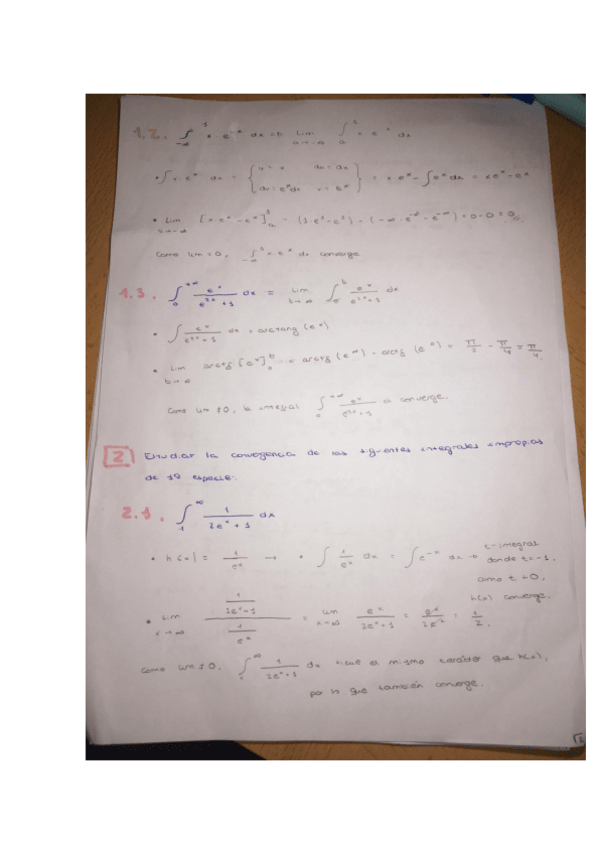 1.2. ∫_{-∞}^{1} x·e^{-x} dx = lim_{a→-∞} ∫_{a}^{1} x e^{x} dx
• ∫ x·e^{x} dx = { u = x du = dx
dv = e^{x}dx v = e^{x} } = x·e^{x} - ∫e^{x}dx = xe^{x} - e^{x}
• Lim_{x→-∞} [x·e^{x} - e^{x}]_{a}^{1} = (1·e^{1} - e^{1}) - (-∞·e^{-∞} - e^{-∞}) = 0 - 0 = 0
Como lim = 0, ∫_{-∞}^{1} x e^{x} dx converge
1.3. ∫_{0}^{+∞} e^{x}/(e^{2x}+1) dx = lim_{b→∞} ∫_{0}^{b} e^{x}/(e^{2x}+1) dx
• ∫ e^{x}/(e^{2x}+1) dx = arctang (e^{x})
• Lim_{b→∞} arctg [e^{x}]_{0}^{b} = arctg (e^{∞}) - arctg (e^{0}) = π/2 - π/4 = π/4
Como lim ≠ 0, la integral ∫_{0}^{+∞} e^{x}/(e^{2x}+1) converge.
2 Estudiar la convergencia de las siguientes integrales impropias
de 1ª especie:
2.1. ∫_{1}^{∞} 1/(2e^{x}+1) dx
• h(x) = 1/e^{x} → • ∫ 1/e^{x} dx = ∫e^{-x} dx → t-integral
donde t=-1.
como t<0,
h(x) converge.
• Lim_{x→∞} (1/(2e^{x}+1))/(1/e^{x}) = lim_{x→∞} e^{x}/(2e^{x}+1) = e^{x}/2e^{x} = 1/2.
Como lim ≠ 0, ∫^{∞} 1/(2e^{x}+1) dx sigue el mismo carácter que h(x),
por lo que también converge.